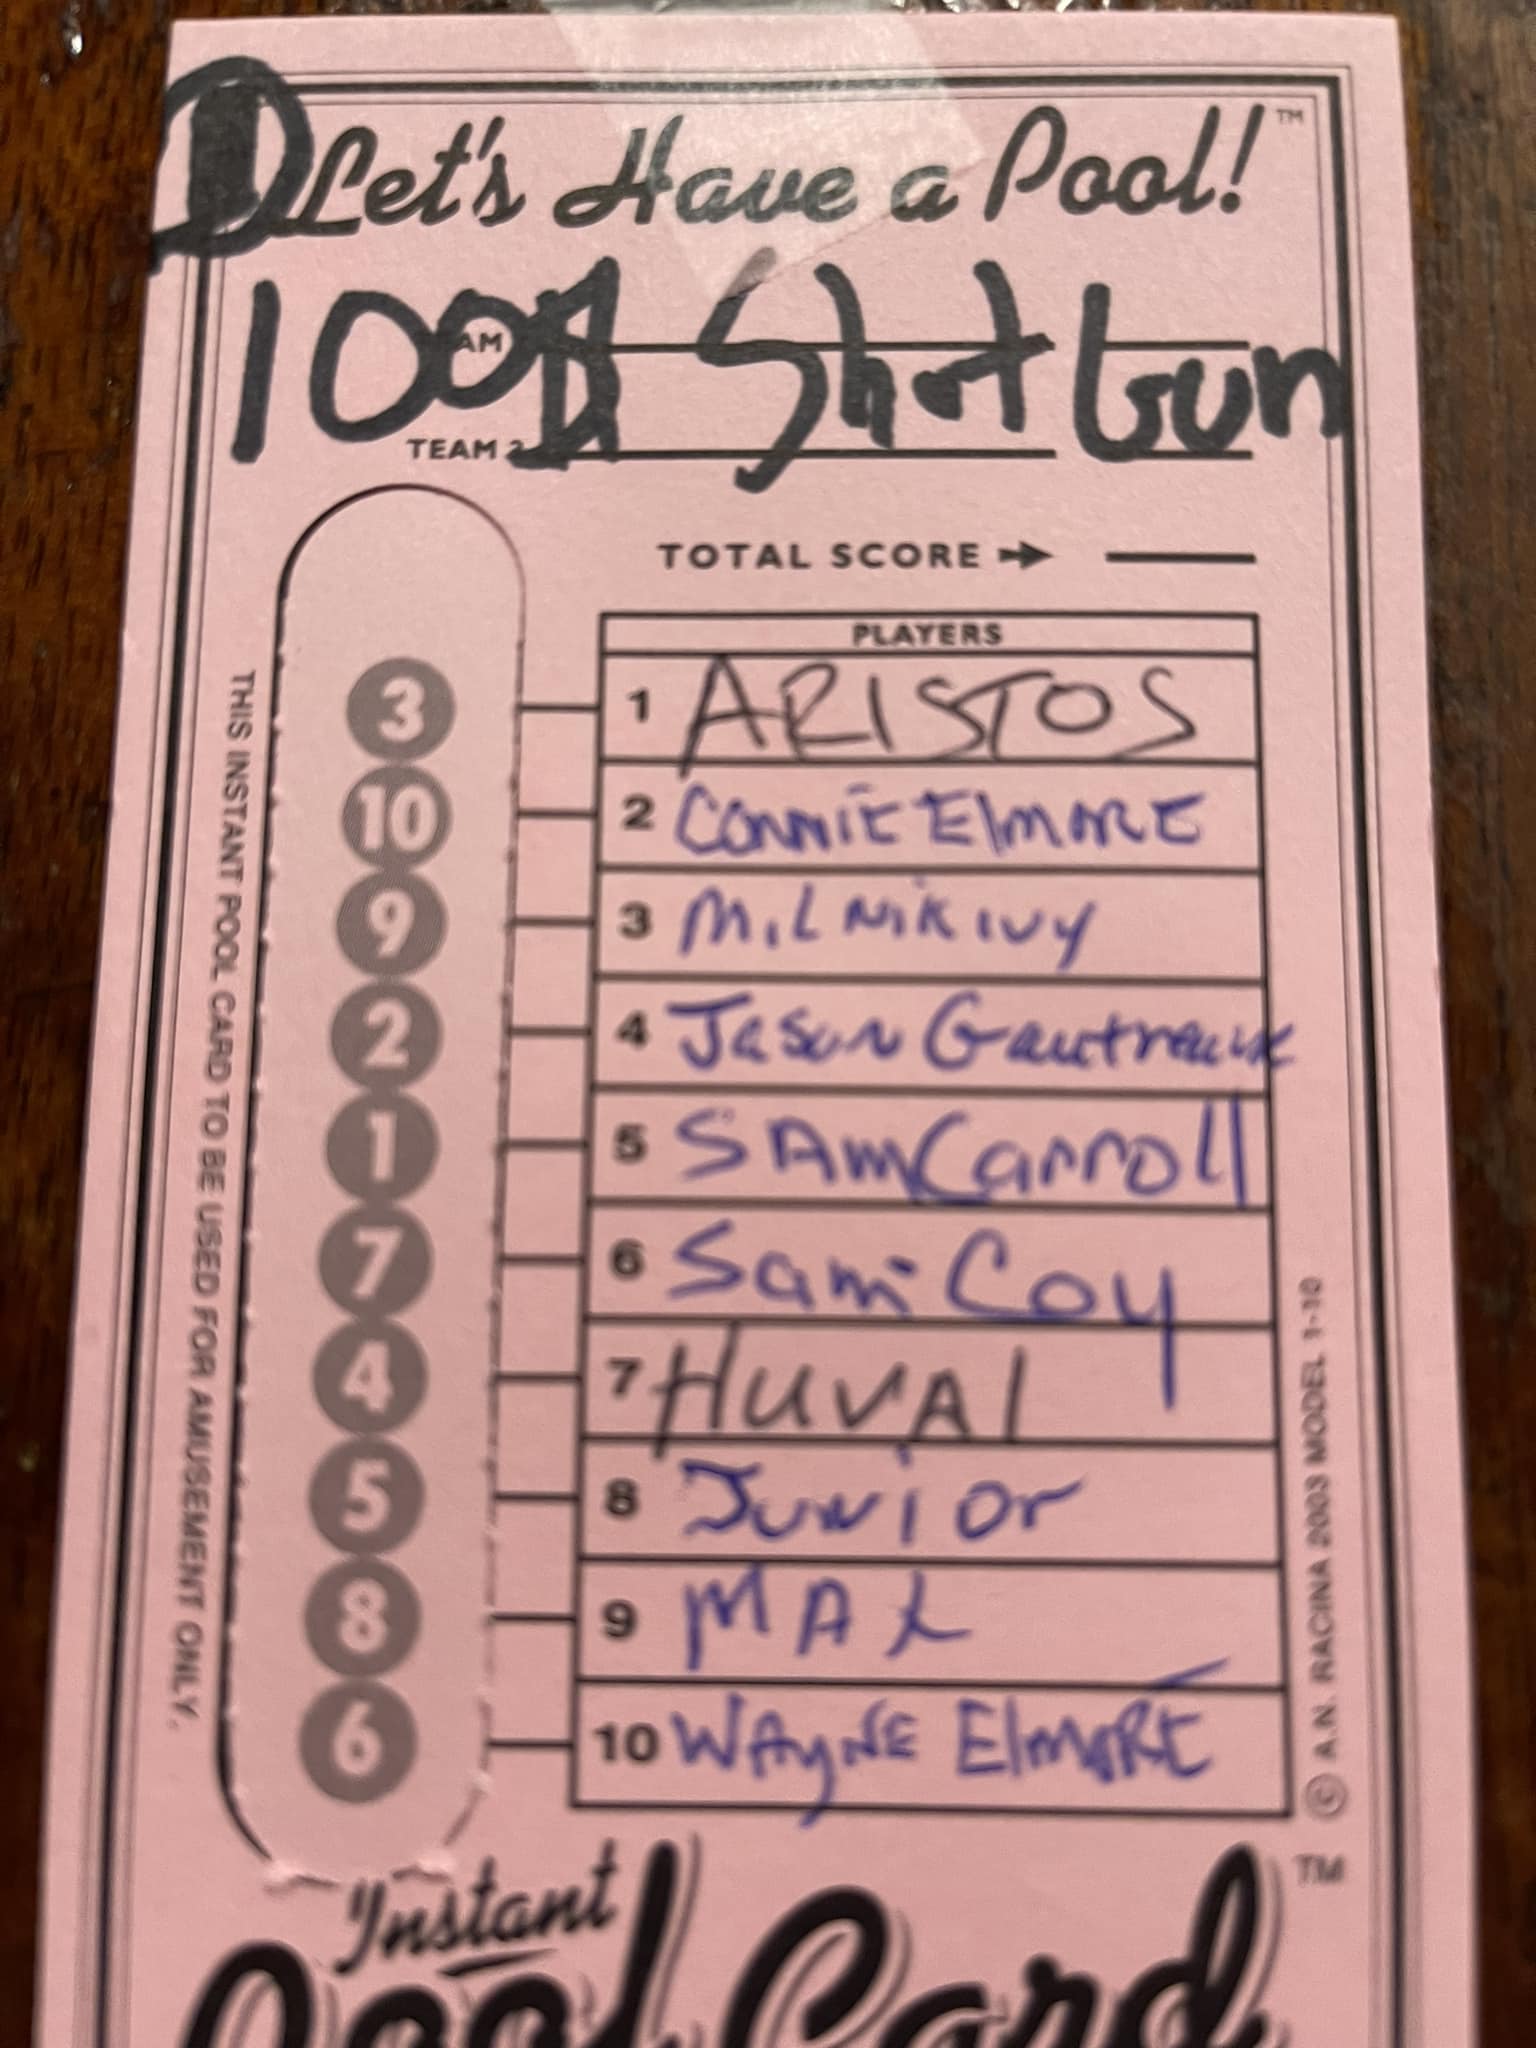 1
Let's Have a Pool!™
100$ ShotGun
TEAM 2
TOTAL SCORE ➔
PLAYERS
3 1 ARISTOS
10 2 Connie Elmore
9 3 Mil Nik Ivy
2 4 Jason Gautreaux
1 5 SAm Carroll
7 6 Sam Coy
4 7 HUVAl
5 8 Junior
8 9 MAL
6 10 WAyNE ElmoRE
THIS INSTANT POOL CARD TO BE USED FOR AMUSEMENT ONLY.
© A.N. RACINA 2003 MODEL 1-10
Instant
Pool Card™